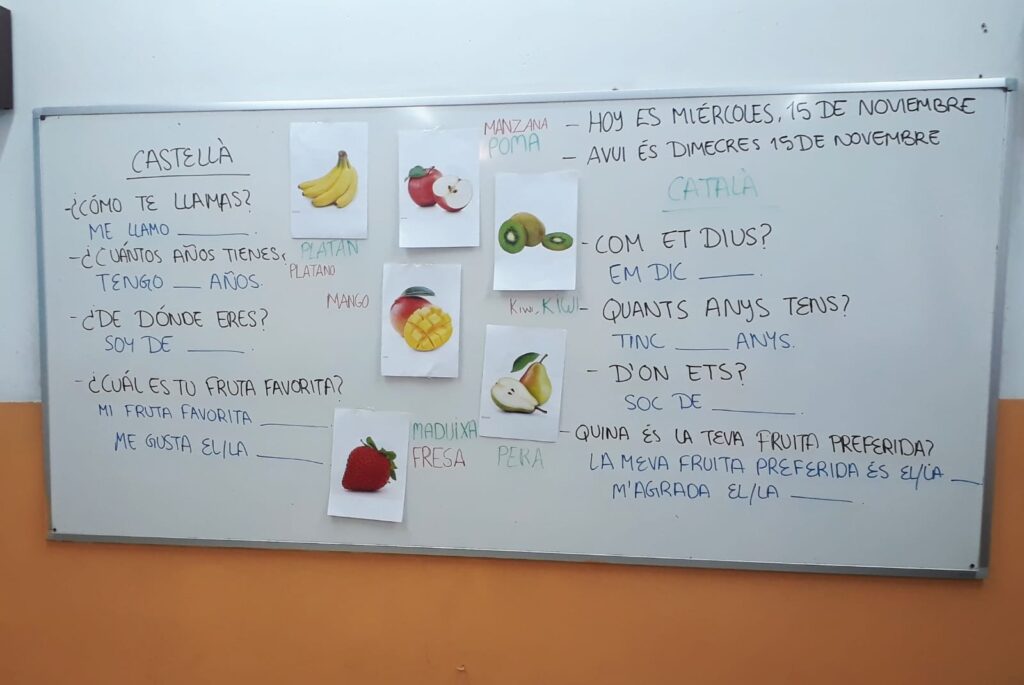 CASTELLÀ
-¿CÓMO TE LLAMAS?
ME LLAMO ________.
-¿CUÁNTOS AÑOS TIENES,
TENGO ___ AÑOS.
-¿DE DÓNDE ERES?
SOY DE ______.
-¿CUÁL ES TU FRUTA FAVORITA?
MI FRUTA FAVORITA ________
ME GUSTA EL/LA ________
PLATAN
PLATANO
MANZANA
POMA
MANGO
KIWI, KIWI
MADUIXA
FRESA
PERA
- HOY ES MIÉRCOLES, 15 DE NOVIEMBRE
- AVUI ÉS DIMECRES 15 DE NOVEMBRE
CATALÀ
- COM ET DIUS?
EM DIC ______.
- QUANTS ANYS TENS?
TINC _____ ANYS.
- D'ON ETS?
SOC DE ________.
- QUINA ÉS LA TEVA FRUITA PREFERIDA?
LA MEVA FRUITA PREFERIDA ÉS EL/LA ___
M'AGRADA EL/LA ______.